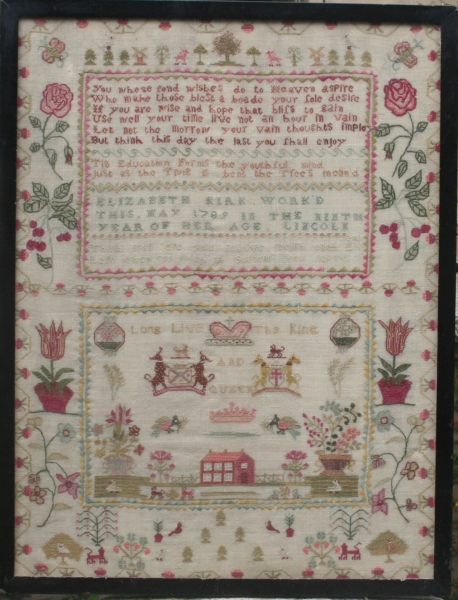 You whose fond wishes do to Heaven aspire
Who make those blest a boade your sole desire
If you are wise and hope that bliss to gain
Use well your time live not an hour in vain
Let not the morrow your vain thoughts imploy
But think this day the last you shall enjoy
Tis Education forms the youthful mind
Just as the Twig is bent the Trees inclin'd
ELIZABETH KIRK WORKD
THIS MAY 1789 IN THE NINTH
YEAR OF HER AGE LINCOLN
Long Live The King
AND
QUEEN